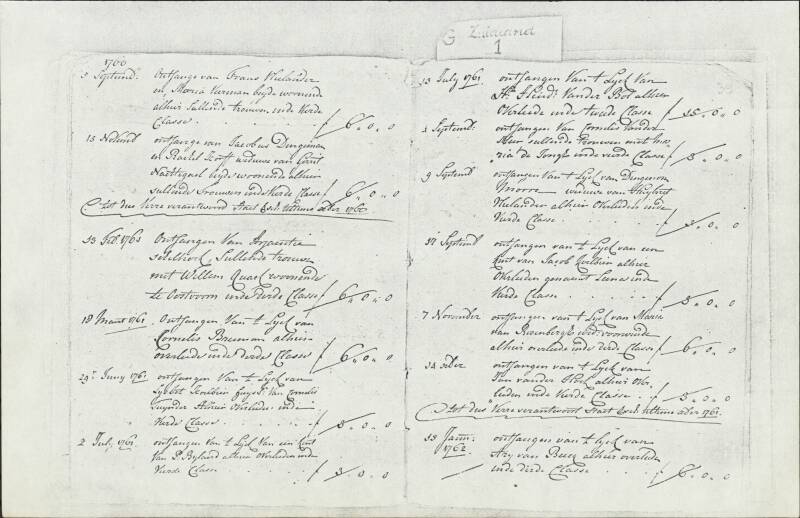 G Zuidland
1
39
1760
3 Septemb. Ontfange van Frans Vlielander
en Maria Verman beyde woonende
alhier Sullende trouwen inde Vierde
Classe ƒ 6.0.0
15 Novemb ontfange van Jacobus Dingeman
en Rachel weduwe van Gerrit
Nachtegael beyde woonende alhier
Sullende Trouwen inde Vierde Classe ƒ 6.0.0
tot dus Verre verantwoord Staet ultimo xber 1760
13 Feb. 1761 Ontfangen Van
Sullende trouwe
met Willem Quack woonende
te Oostvoorn inde derde Classe ƒ 6.0.0
18 Maart 1761. Ontfangen Van t Lyck van
Cornelis Breeman alhier
overleede inde derde Classe ƒ 6.0.0
29 Juny 1761 ontfangen Van t Lyck van
Huysv. Van Cornelis
Alhier Overleede inde
Vierde Classe ƒ 3.0.0
2 July 1761 ontfangen Van t Lyck Van een kint
Van P. Byland alhier Overleeden inde
Vierde Classe ƒ 3.0.0
13 July 1761. ontfangen Van t Lyck Van
Vander Bol alhier
Overleede inde tweede Classe ƒ 15.0.0
1 Septemb: ontfangen Van Cornelis Vander
sullende Trouwen met Ma,
ria de Jongh inde vierde Classe ƒ 3.0.0
9 Septemb ontfangen Van t Lyck van Dingenom
weduwe van Huybert
Vlielander alhier Overleeden inde
Vierde Classe ƒ 3.0.0
17 Septemb ontfangen van t Lyck van een
kint van Jacob alhier
Overleeden genaemt Lena inde
Vierde Classe ƒ 3.0.0
7 November ontfangen van t Lyck van Maria
van Roosenbergh
alhier overleede inde derde Classe ƒ 6.0.0
14 xber ontfangen van t Lyck van
Jan vander alhier Over,
leeden inde Vierde Classe ƒ 3.0.0
tot dus Verre verantwoord Staet ultimo xber 1761.
13 Janu: ontfangen van t Lyck van
1762 Ary van alhier overleede
inde derde Classe ƒ 6.0.0